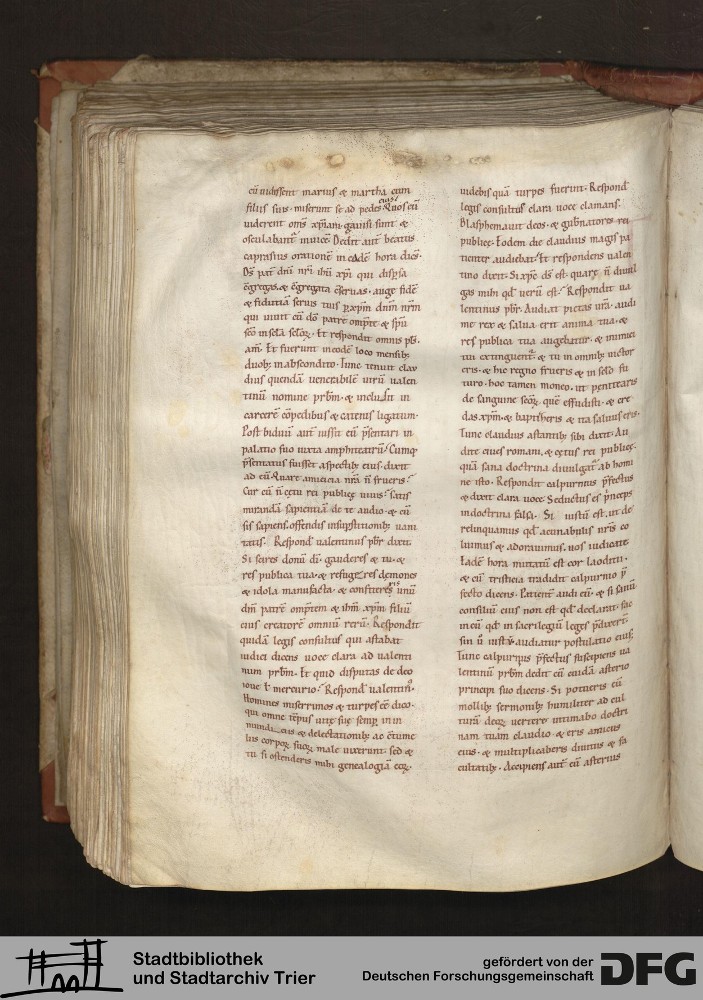 cū uidissent marius & martha cum
filiis suis. miserunt se ad pedes eius. Quos cū
uiderent om̄s xp̄iani gauisi sunt &
osculabant᷑ inuicē Dedit aut̄ beatus
caprasius orationē in eadē hora dicēs.
Ds̄ pat̄ dn̄i nr̄i ihū xp̄i qui disp̄sa
c̄gregas. & c̄gregata c̄seruas. auge fidē
& fiduciā seruis tuis ꝑ xp̄m dn̄m nr̄m
qui uiuit cū dō patre om̄pte & sp̄u
sc̄o in sc̄la sc̄loꝝ. Et respondit omnis pb̄r.
am̄. Et fuerunt in eodē loco mensib;
duob; in abscondito. Tunc tenuit clau
dius quendā uenerabilē uirū ualen
tinū nomine prb̄m. & inclusit in
carcerē cōpedibus & catenis ligatum.
Post biduū aut̄ iussit eū p̄sentari in
palatio suo iuxta amphiteatrū. Cumq;
p̄sentatus fuisset aspectib; eius. dixit
ad eū. Quare amicicia nr̄a n̄ frueris?
Cur cū n̄ ęctu rei publicę uiuis? satis
mirandā sapientiā de te audio. & cū
sis sapiens. offendis in supstitionib; uani
tatis. Respond̄ ualentinus pb̄r dixit.
Si scires donū dī. gauderes & tu. &
res publica tua. & refugeres demones
& idola manufacta. & confitereris unū
dm̄ patrē om̄ptem & ihm̄ xp̄m filiū
eius creatorē omniū rerū. Respondit
quidā legis consultus qui astabat
iudici dicens uoce clara ad ualenti
num prb̄m. Et quid disputas de deo
ioue ł mercurio? Respond̄ ualentin᷒.
Homines miserrimos & turpes eē dico.
qui omne tēpus uitę suę semp̱ in in
mundiciis & delectationib; ac c̄tume
liis corporꝝ suoꝝ male uixerunt. sed &
tu si ostenderis mihi genealogiā eoꝝ.
uidebis quā turpes fuerint. Respond̄
legis consultus clara uoce clamans.
Blasphemauit deos. & gub̄natores rei
publicę. Eodem die claudius magis pa
tienter audiebat. Et respondens valen
tino dixit. Si xp̄c ds̄ est. quare n̄ diuul
gas mihi qd̄ uerū est? Respondit ua
lentinus pb̄r. Audiat pietas ur̄a. audi
me rex & salua erit anima tua. &
res publica tua augebitur. & inimici
tui extinguent᷑. & tu in omnib; uictor
eris. & hic regno frueris & in sc̄ld fu
turo. hoc tamen moneo. ut penitearis
de sanguine sc̄oꝝ. quē effudisti. & cre
das xp̄m. & baptizeris & ita saluus eris.
Tunc claudius astantib; sibi dixit. Au
dite ciues romani. & cętus rei publicę.
quā sana doctrina diuulgat᷑ ab homi
ne isto. Respondit calpurnius p̄fectus
& dixit clara uoce. Seductus es p̄nceps
in doctrina falsa. Si iustū est. ut de
relinquamus qd̄ a cunabulis nr̄is co
luimus & adorauimus. uos iudicate.
Eadē hora mutatū est cor claudii.
& cū tristicia tradidit calpurnio p̄
fecto dicens. Patient᷑ audi eū. & si sanū
consiliū eius non est qd̄ declarat. fac
in eū qd̄ in sacrilegiū leges p̄dixert̄.
sin ū iusta. audiatur postulatio eius.
Tunc calpurnius p̄fectus suscipiens ua
lentinū prb̄m dedit eū cuidā asterio
principi suo dicens. Si potueris eū
mollib; sermonib; humiliter ad cul
turā deoꝝ uertere. intimabo doctri
nam tuam claudio. & eris amicus
eius. & multiplicaberis diuitiis & fa
cultatib;. Accipiens aut̄ eū asterius
Stadtbibliothek
und Stadtarchiv Trier
gefördert von der
Deutschen Forschungsgemeinschaft
DFG